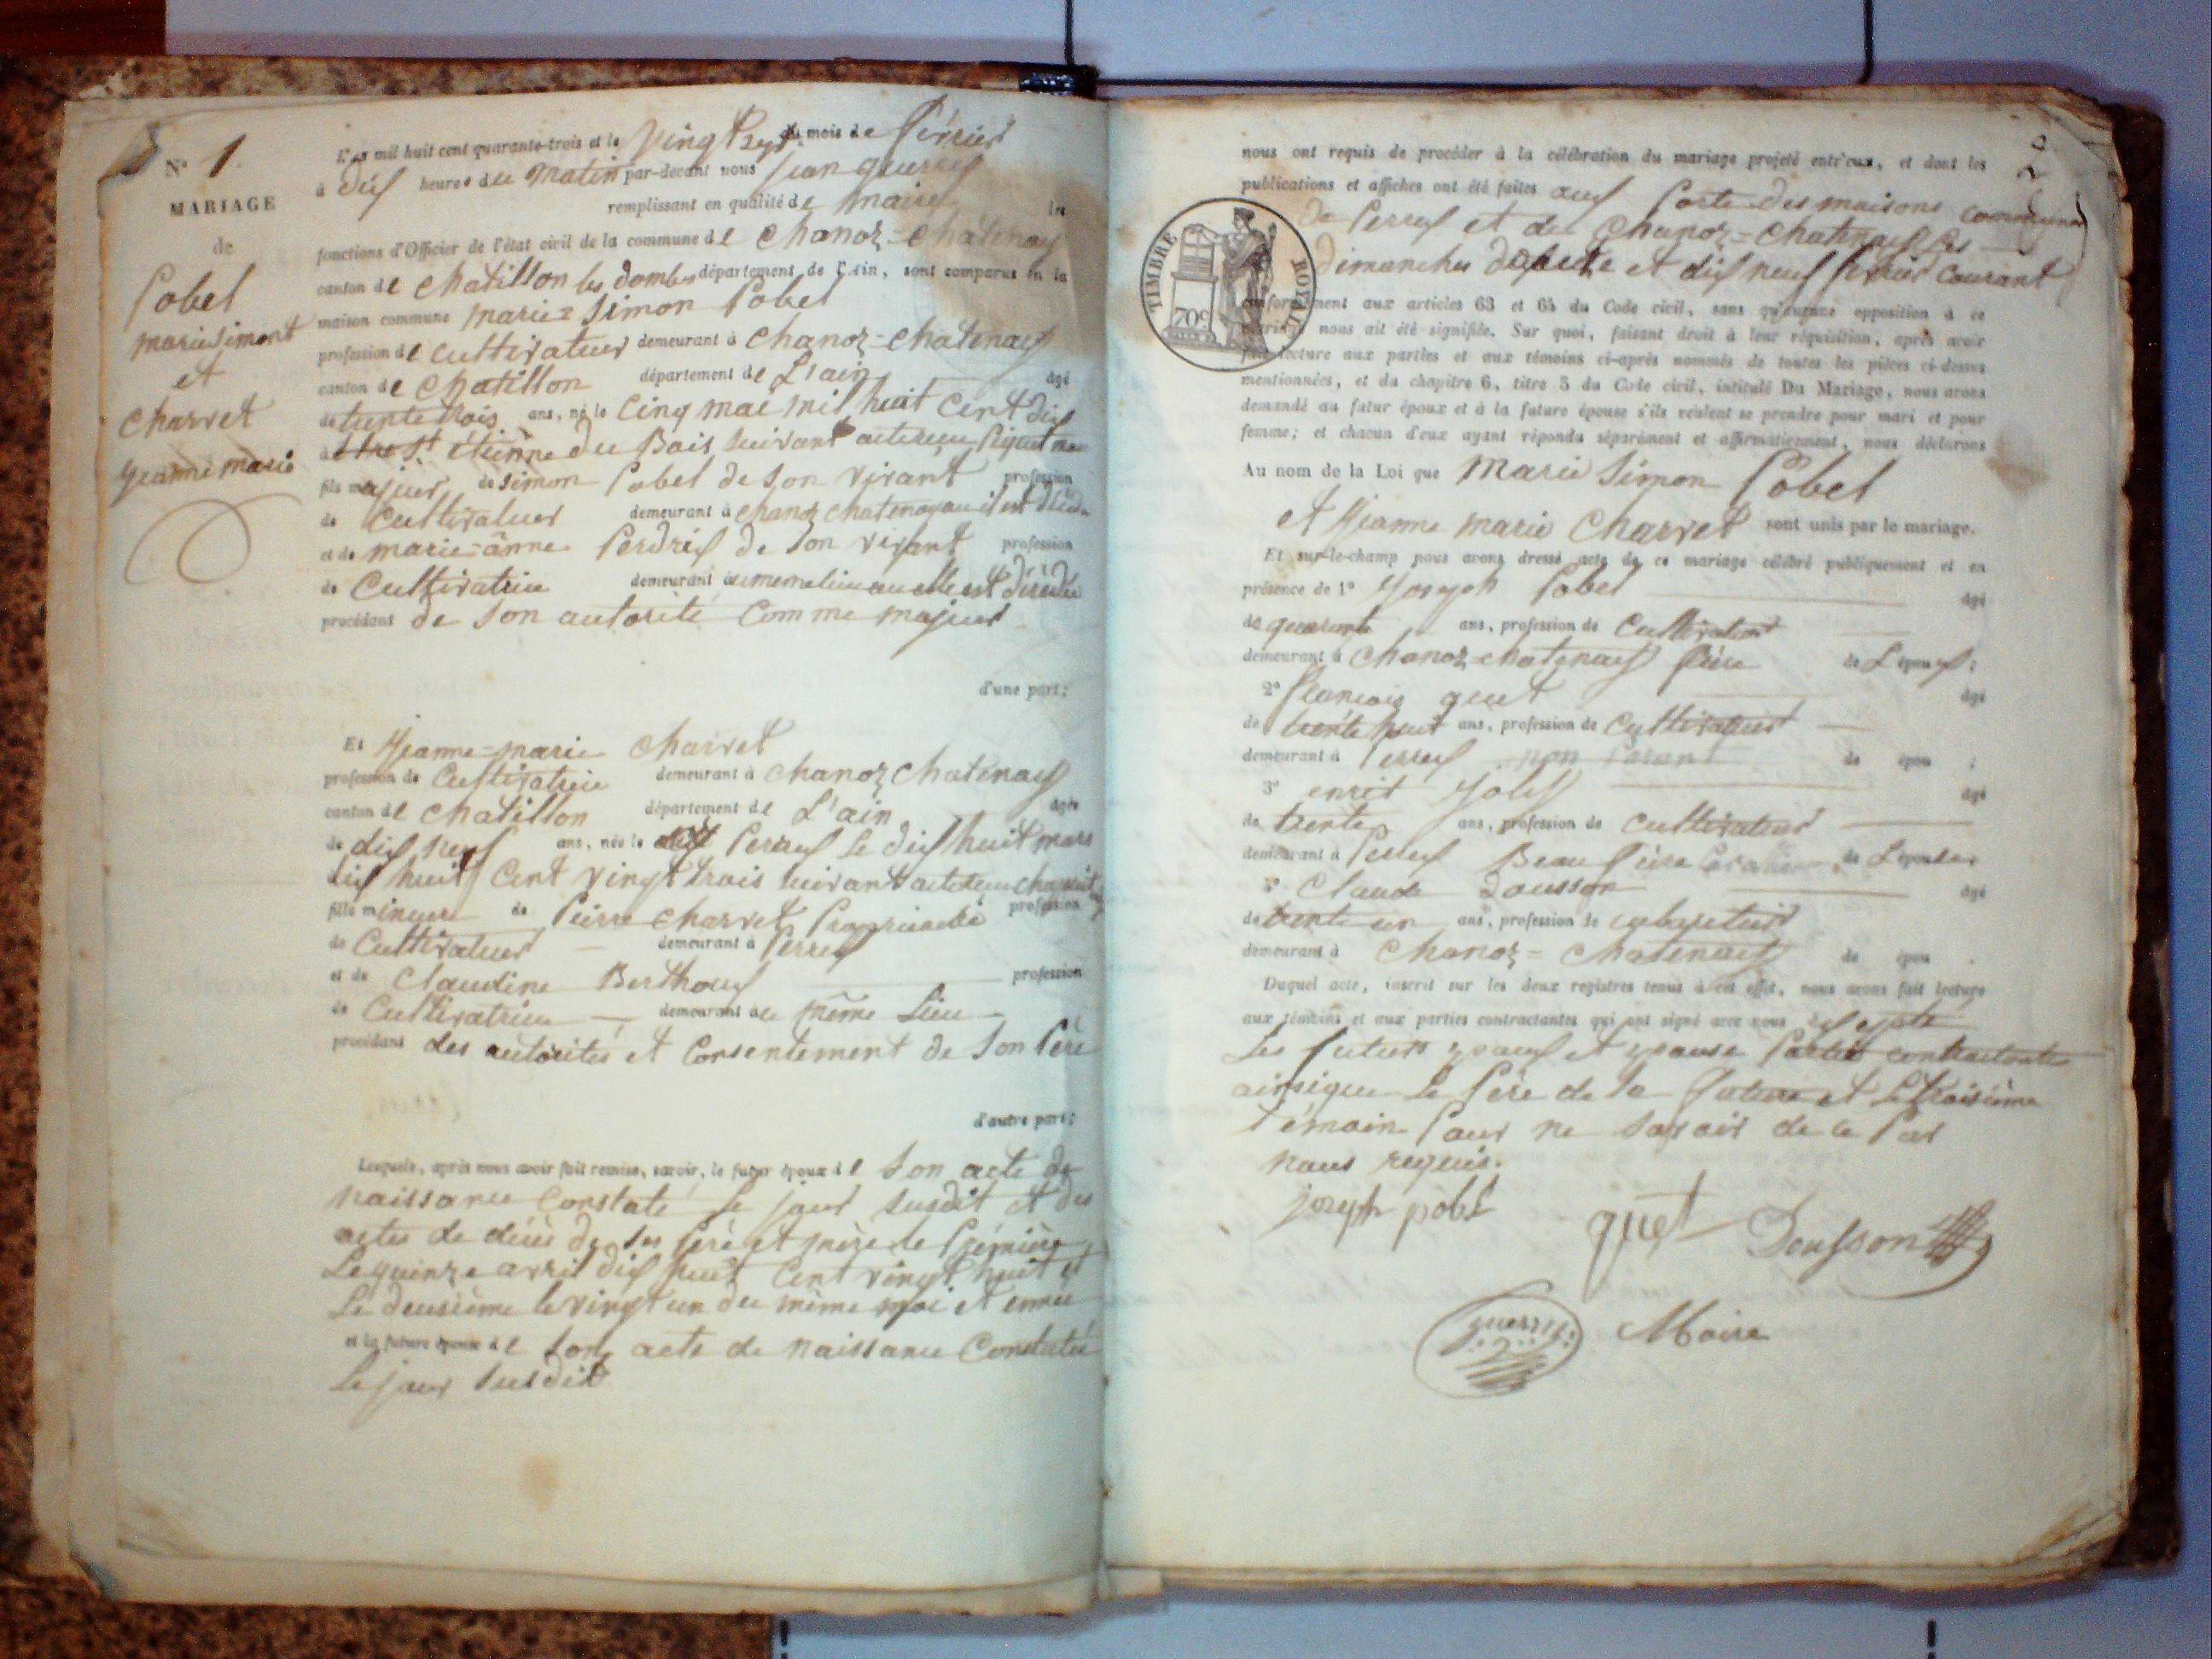 N° 1.
MARIAGE
de
Pobel
marie Simont
et
Charvet
jeanne marie
L'an mil huit cent quarante-trois et le vingt sept du mois de février
à dix heures du matin par-devant nous jean guerry
remplissant en qualité de maire les
fonctions d'Officier de l'état civil de la commune de Chanoz=Châtenay
canton de Chatillon les dombes département de l'Ain, sont comparus en la
maison commune marie=Simon Pobel
profession de Cultivateur demeurant à Chanoz=Chatenay
canton de Chatillon département de L'ain âgé
de trente trois ans, né le Cinq mai mil huit Cent dix
à St étienne du Bois suivant acte
fils majeur de Simon Pobel de son vivant profession
de Cultivateur demeurant à Chanoz Chatenay ou il est décédé
et de marie=anne Perdrix de son vivant profession
de Cultivatrice demeurant au meme lieu ou elle est décédée
procédant de son autorité Comme majeur
d'une part;
Et Jeanne=marie Charvet
profession de Cultivatrice demeurant à Chanoz Chatenay
canton de Chatillon département de L'ain âgée
de dix neuf ans, née le Perrex le dix huit mars
dix huit Cent vingt trois suivant acte
fille mineure de Pierre Charvet Propriaitre profession
de Cultivateur demeurant à Perrex
et de Claudine Berthoux profession
de Cultivatrice demeurant au même Lieu
procédant des autorités et Consentement de son Père
d'autre part;
Lesquels, après nous avoir fait remise, savoir, le futur époux de son acte de
naissance Constaté le jour susdit et des
actes de décès de ses Père et mère le Premier
Le quinze avril dix huit Cent vingt huit et
Le deusième le vingt un du même moi et
et la future épouse de son acte de naissance Constaté
Le jour susdit
2
nous ont requis de procéder à la célébration du mariage projeté entr'eux, et dont les
publications et affiches ont été faites aux Porte des maisons Commune
de Perrex et de Chanoz=Chatenay les
dimanches et dix neuf février Courant
TIMBRE ROYAL
70c
conformément aux articles 63 et 64 du Code civil, sans qu'aucune opposition à ce
mariage nous ait été signifiée. Sur quoi, faisant droit à leur réquisition, après avoir
fait lecture aux parties et aux témoins ci-après nommés de toutes les pièces ci-dessus
mentionnées, et du chapitre 6, titre 5 du Code civil, intitulé Du Mariage, nous avons
demandé au futur époux et à la future épouse s'ils veulent se prendre pour mari et pour
femme; et chacun d'eux ayant répondu séparément et affirmativement, nous déclarons
Au nom de la Loi que Marie Simon Pobel
et Jeanne marie Charvet sont unis par le mariage.
Et sur-le-champ nous avons dressé acte de ce mariage célébré publiquement et en
présence de 1° Joseph Pobel âgé
de quarante ans, profession de Cultivateur
demeurant à Chanoz=chatenay frère de L'époux;
2° francois guet âgé
de trente huit ans, profession de Cultivateur
demeurant à Perrex non Parant de épou ;
3° Joly âgé
de trente ans, profession de Cultivateur
demeurant à Perrex Beau frère de L'épouse
4° Claude Dousson âgé
de trente un ans, profession de
demeurant à Chanoz=Chatenay de épou .
Duquel acte, inscrit sur les deux registres tenus à cet effet, nous avons fait lecture
aux témoins et aux parties contractantes qui ont signé avec nous
Les futurs epoux et epouse Partie contractante
ainsique le Père de la future et le troisième
témoin Pour ne savoir de ce Par
nous requis.
joseph pobel
guet
Dousson
guerry
Maire